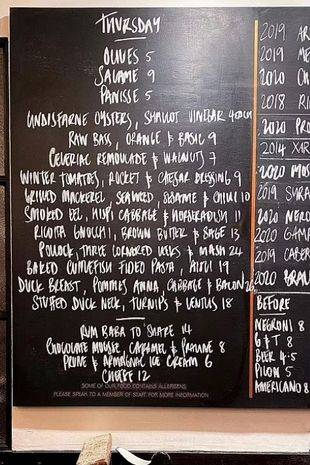 THURSDAY
OLIVES 5
SALAME 9
PANISSE 5
LINDISFARNE OYSTERS, SHALLOT VINEGAR 4 EACH
RAW BASS, ORANGE & BASIL 9
CELERIAC REMOULADE & WALNUTS 7
WINTER TOMATOES, ROCKET & CAESAR DRESSING 9
GRILLED MACKEREL, SEAWEED, SESAME & CHILLI 10
SMOKED EEL, HISPI CABBAGE & HORSERADISH 11
RICOTTA GNOCCHI, BROWN BUTTER & SAGE 13
POLLOCK, THREE CORNERED LEEKS & MASH 24
BAKED CUTTLEFISH FIDEO PASTA, AIOLI 19
DUCK BREAST, POMMES ANNA, CABBAGE & BACON
STUFFED DUCK NECK, TURNIPS & LENTILS 18
RUM BABA TO SHARE 14
CHOCOLATE MOUSSE, CARAMEL & PRALINE 8
PRUNE & ARMAGNAC ICE CREAM 6
CHEESE 12
SOME OF OUR FOOD CONTAINS ALLERGENS
PLEASE SPEAK TO A MEMBER OF STAFF FOR MORE INFORMATION
2019 AR
2019 ME
2020 CH
2018 RI
2020 PRO
2014 XAR
2020 MOS
2019 SYRA
2020 NERO
2020 GAMA
2019 CABER
2020 BRAU
BEFORE
NEGRONI 8
G & T 8
BEER 4.5
PICON 5
AMERICANO 8